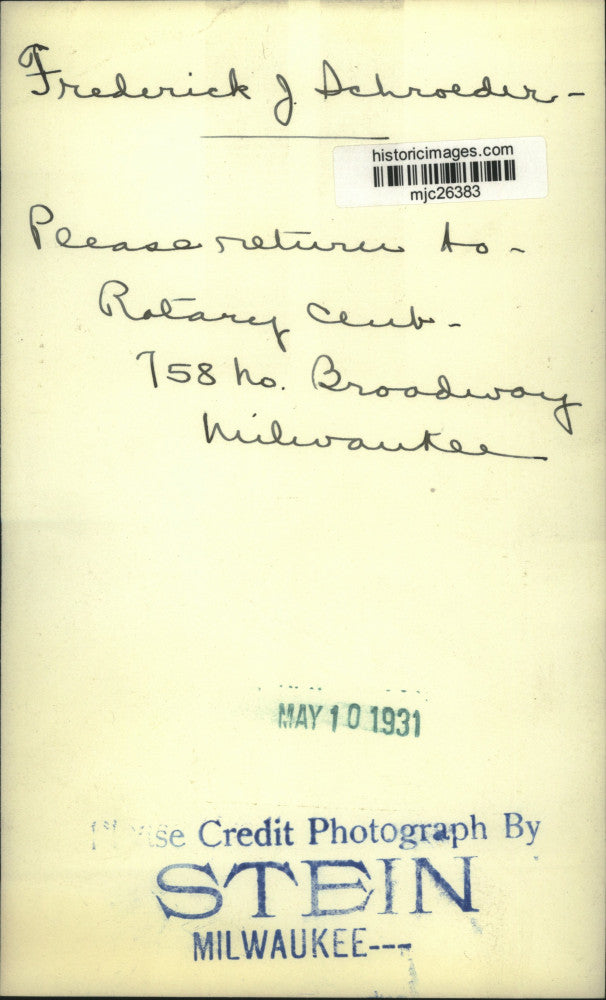 Frederick J. Schroeder-
historicimages.com
mjc26383
Please return to -
Rotary Club -
758 No. Broadway
Milwaukee
MAY 10 1931
Please Credit Photograph By
STEIN
MILWAUKEE---